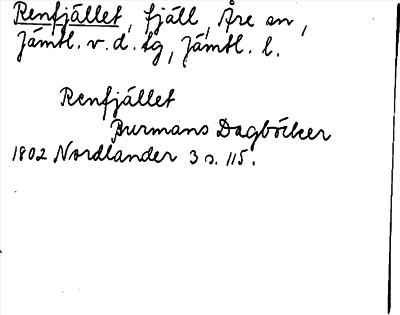 Renfjället, fjäll, Åre sn,
Jämtl. v. d. tg, Jämtl. l.
Renfjället
Burmans Dagböcker
1802 Nordlander 3 s. 115.